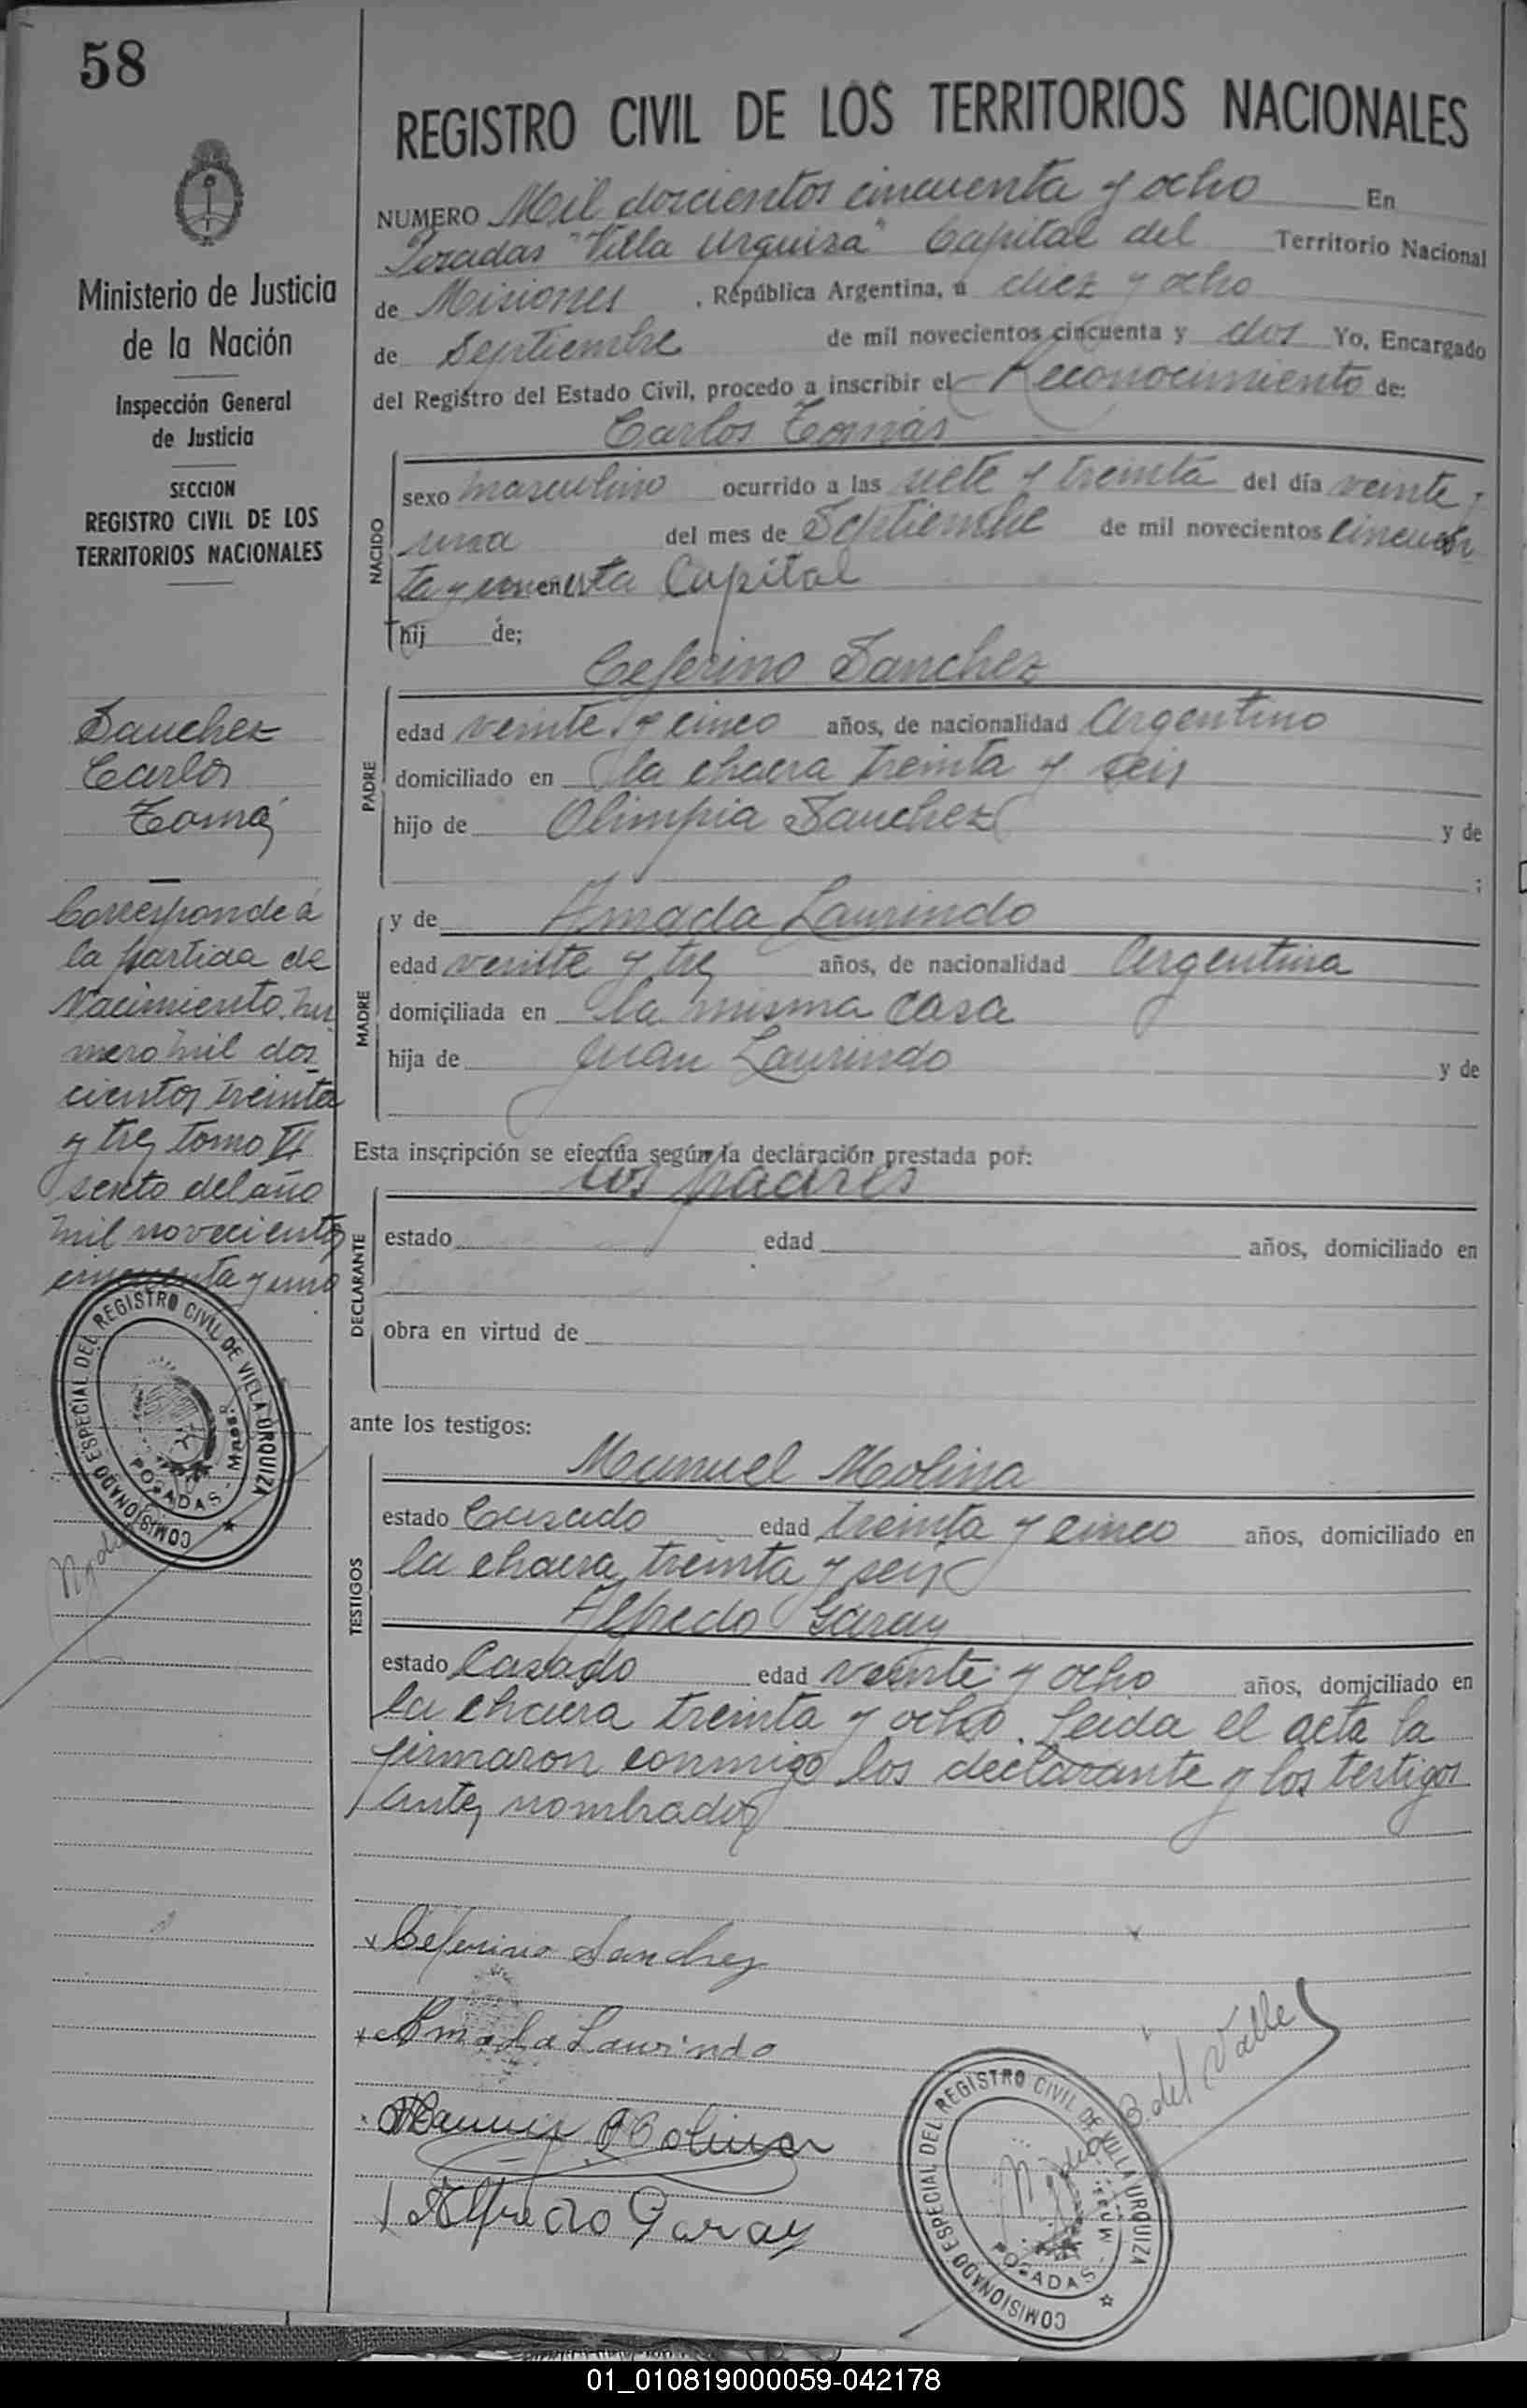 58
REGISTRO CIVIL DE LOS TERRITORIOS NACIONALES
Ministerio de Justicia
de la Nación
Inspección General
de Justicia
SECCION
REGISTRO CIVIL DE LOS
TERRITORIOS NACIONALES
Sanchez
Carlos
Tomás
Corresponde á
la partida de
Nacimiento nu
mero mil dos
cientos treinta
y tres tomo VI
sexto del año
mil novecientos
cincuenta y uno
COMISIONADO ESPECIAL DEL REGISTRO CIVIL DE VILLA URQUIZA
POSADAS - Mnes.
NUMERO Mil doscientos cincuenta y ocho En
Posadas "Villa Urquiza" Capital del Territorio Nacional
de Misiones , República Argentina, a diez y ocho
de Septiembre de mil novecientos cincuenta y dos Yo, Encargado
del Registro del Estado Civil, procedo a inscribir el Reconocimiento de:
Carlos Tomás
NACIDO
sexo masculino ocurrido a las siete y treinta del día veinte y
uno del mes de Septiembre de mil novecientos cincuen
ta y uno en esta Capital
hij de;
Ceferino Sanchez
PADRE
edad veinte y cinco años, de nacionalidad Argentino
domiciliado en la chacra treinta y seis
hijo de Olimpia Sanchez y de
;
y de Amada Laurindo
MADRE
edad veinte y tres años, de nacionalidad Argentina
domiciliada en la misma casa
hija de Juan Laurindo y de
Esta inscripción se efectúa según la declaración prestada por:
los padres
DECLARANTE
estado edad años, domiciliado en
obra en virtud de
ante los testigos:
Manuel Molina
TESTIGOS
estado Casado edad treinta y cinco años, domiciliado en
la chacra treinta y seis
Alfredo Garay
estado Casado edad veinte y ocho años, domiciliado en
la chacra treinta y ocho. Leida el acta la
firmaron conmigo los declarante y los testigos
antes nombrados
x Ceferino Sanchez
x Amada Laurindo
Molina
Alfredo Garay
B. del Valle
COMISIONADO ESPECIAL DEL REGISTRO CIVIL DE VILLA URQUIZA
POSADAS - Mnes.
01_010819000059-042178